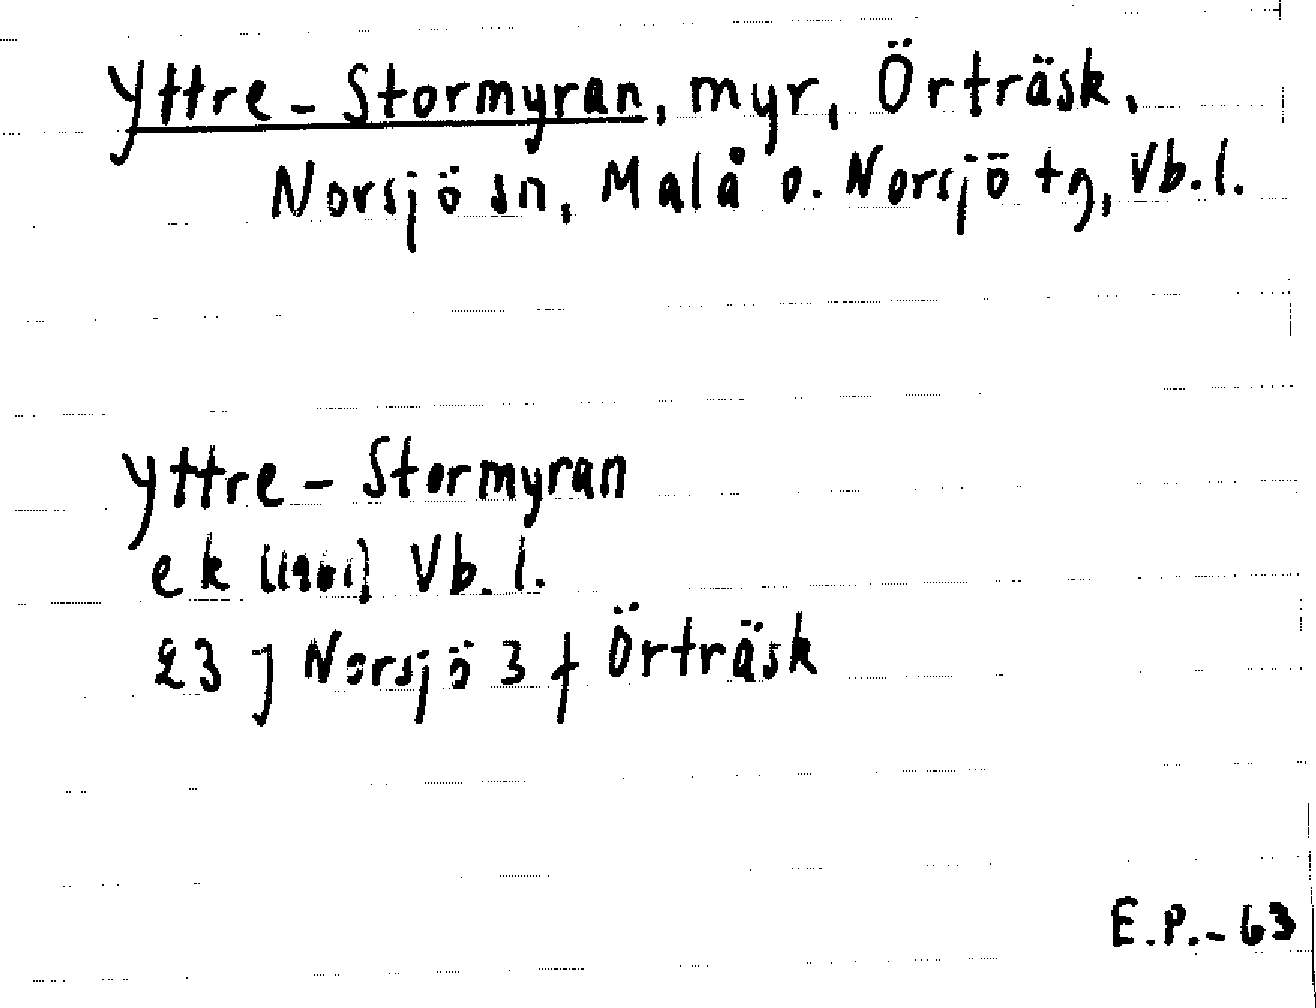 Yttre-Stormyran, myr, Örträsk,
Norsjö sn, Malå o. Norsjö tg, Vb.l.
Yttre-Stormyran
ek (1961) Vb.l.
23 J Norsjö 3 f Örträsk
E.P.-63